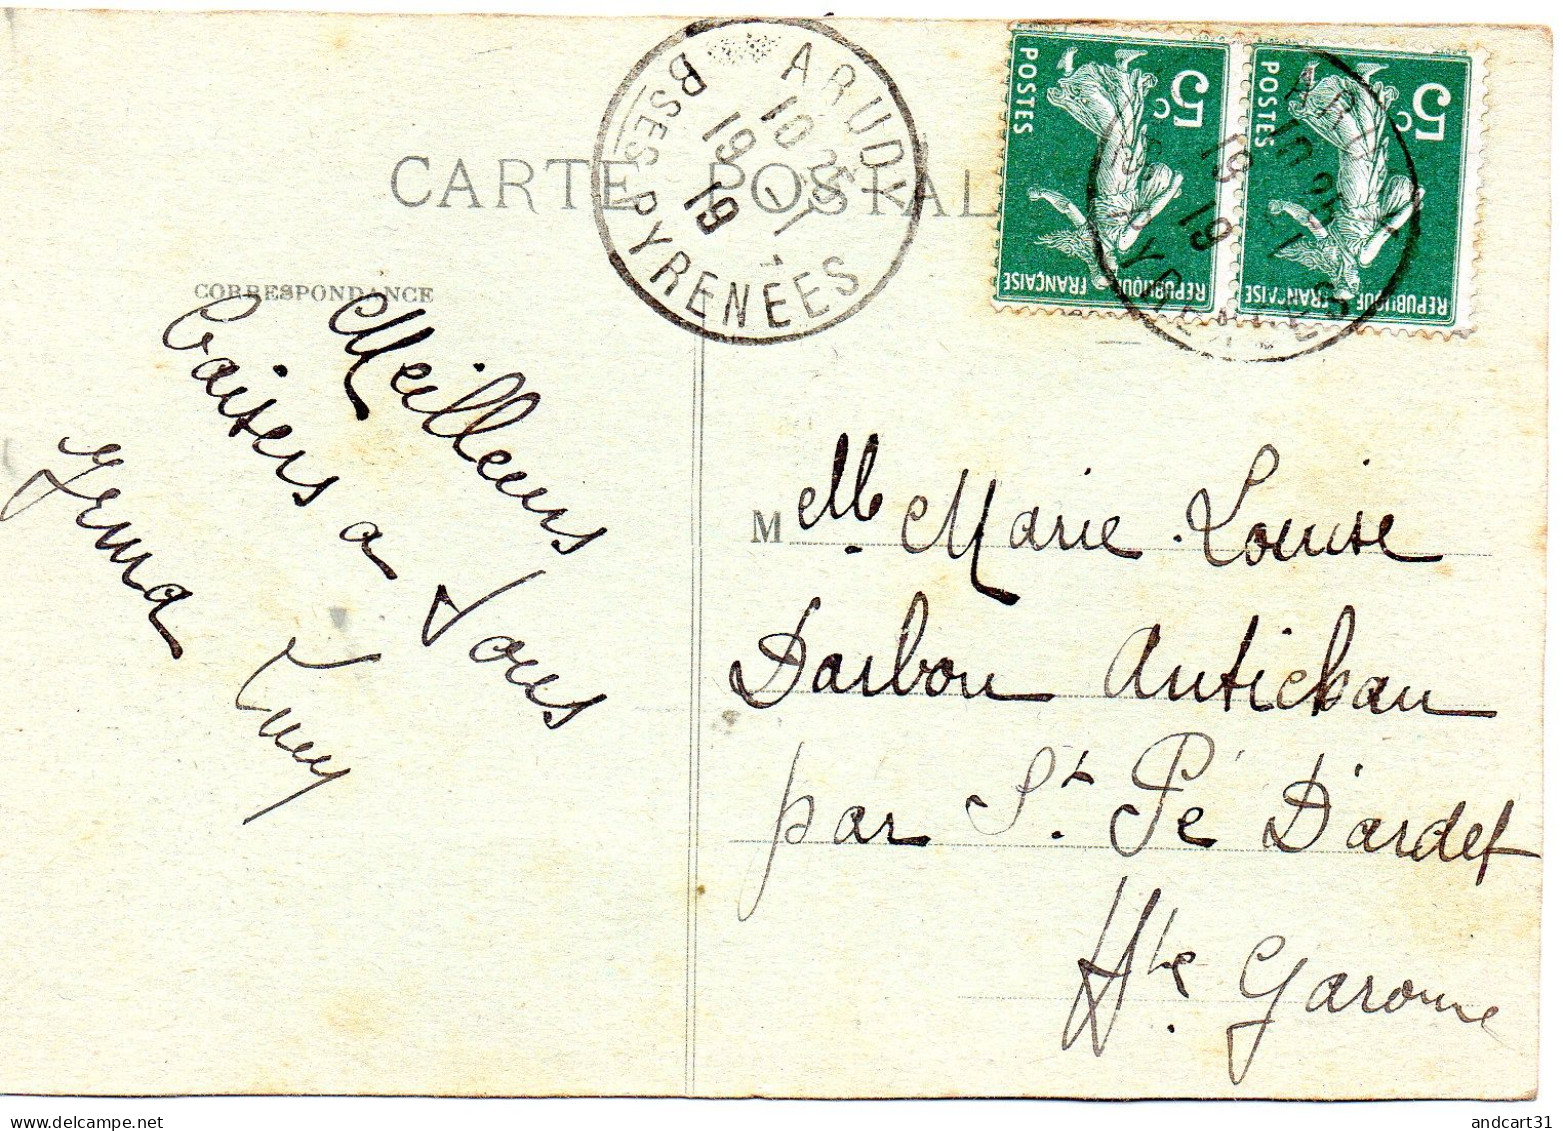 CARTE POSTALE
CORRESPONDANCE
Meilleurs
baisers a vous
Irma Lucy
ARUDY
10
19 19
BSES PYRENEES
5c
POSTES
REPUBLIQUE FRANÇAISE
5c
POSTES
REPUBLIQUE FRANÇAISE
ARUDY
19 19
Melle Marie Louise
Darbon Antichan
par St. Pé D'ardet
Hte Garonne
andcart31